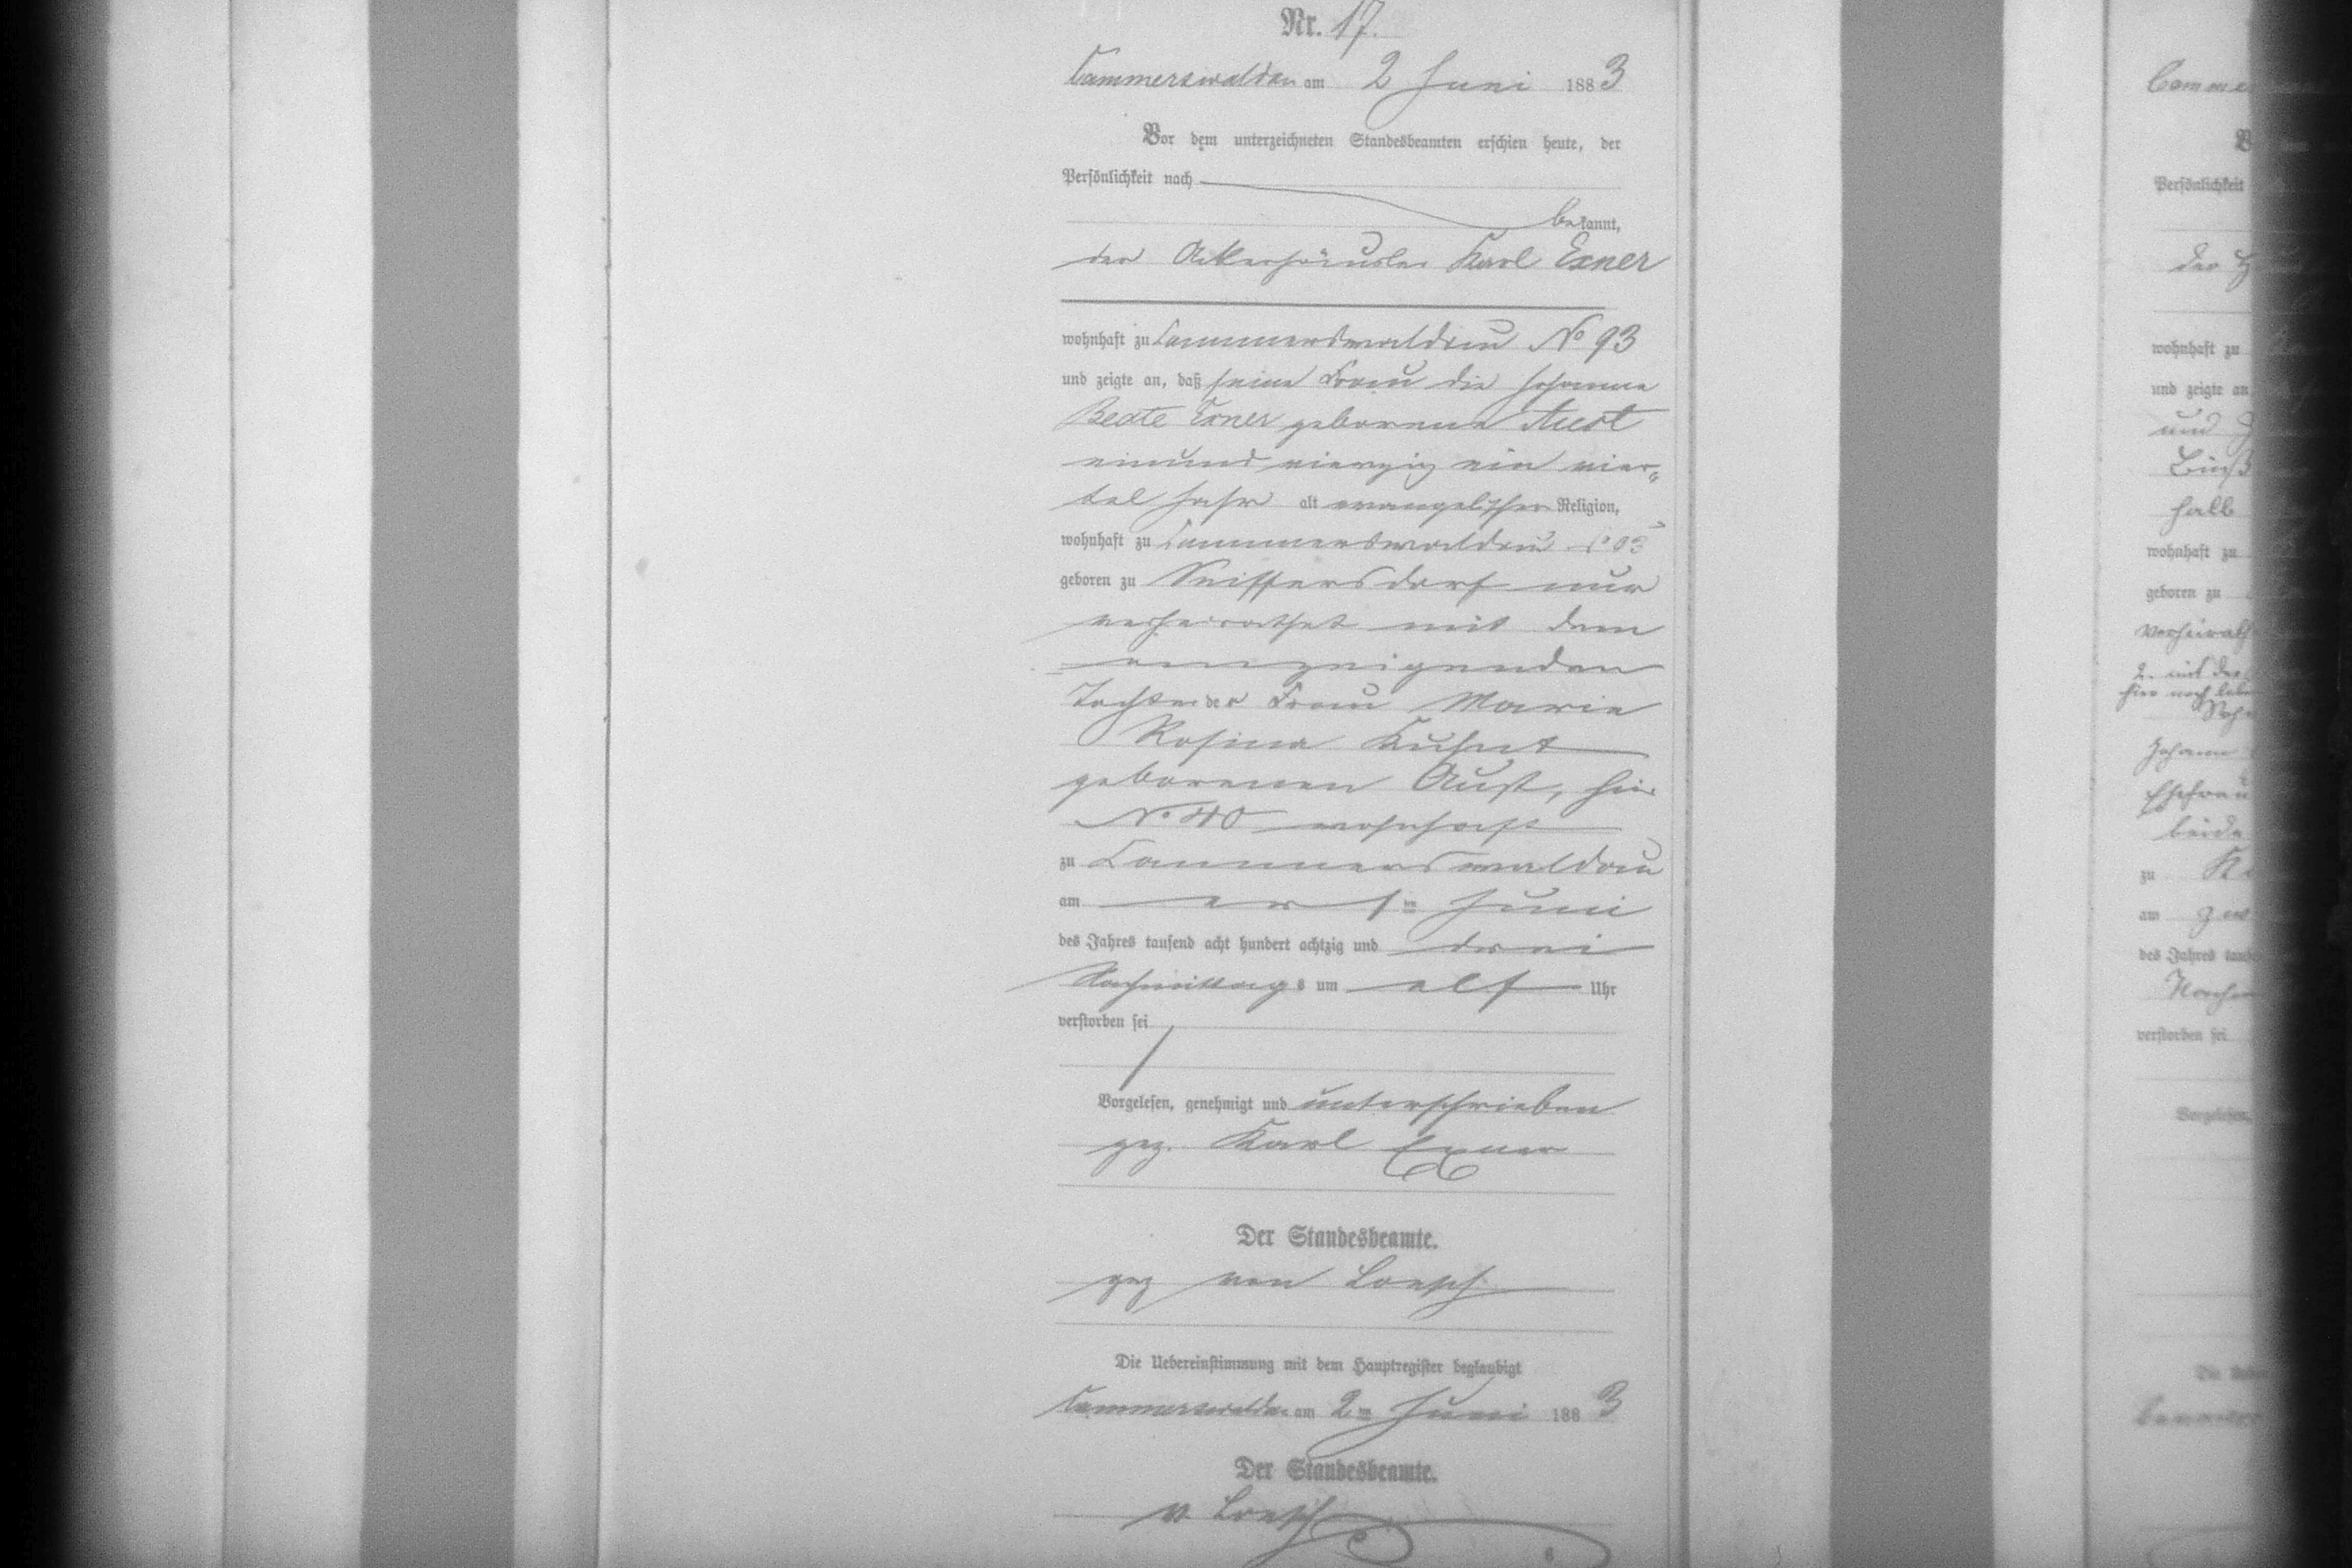 Nr. 17.
Cammerswaldau am 2 Juni 1883
Vor dem unterzeichneten Standesbeamten erschien heute, der
Persönlichkeit nach
bekannt,
der Ackerhäusler Karl Exner
wohnhaft zu Cammerswaldau No 93
und zeigte an, daß seine Frau die Johanne
Beate Exner geborene Aust
einund vierzig ein vier„
tel Jahr alt evangelischer Religion,
wohnhaft zu Cammerswaldau
geboren zu Seiffersdorf nur
verheirathet mit dem
anzeigenden
Tochter der Frau Marie
Rosina Kuhnt
geborenen Aust, hier
No 40 wohnhaft
zu Cammerswaldau
am 1ten Juni
des Jahres tausend acht hundert achtzig und drei
Nachmittags um elf Uhr
verstorben sei
Vorgelesen, genehmigt und unterschrieben
gez. Karl Exner
Der Standesbeamte.
gez von Loesch
Die Uebereinstimmung mit dem Hauptregister beglaubigt
Cammerswaldau am 2ten Juni 1883
Der Standesbeamte.
v. Loesch
6
Persönlichkeit
wohnhaft zu
und zeigte an
und
halb
wohnhaft zu
geboren zu
2. mit der
Johann
Ehefrau
beide
zu
am
des Jahres
verstorben sei